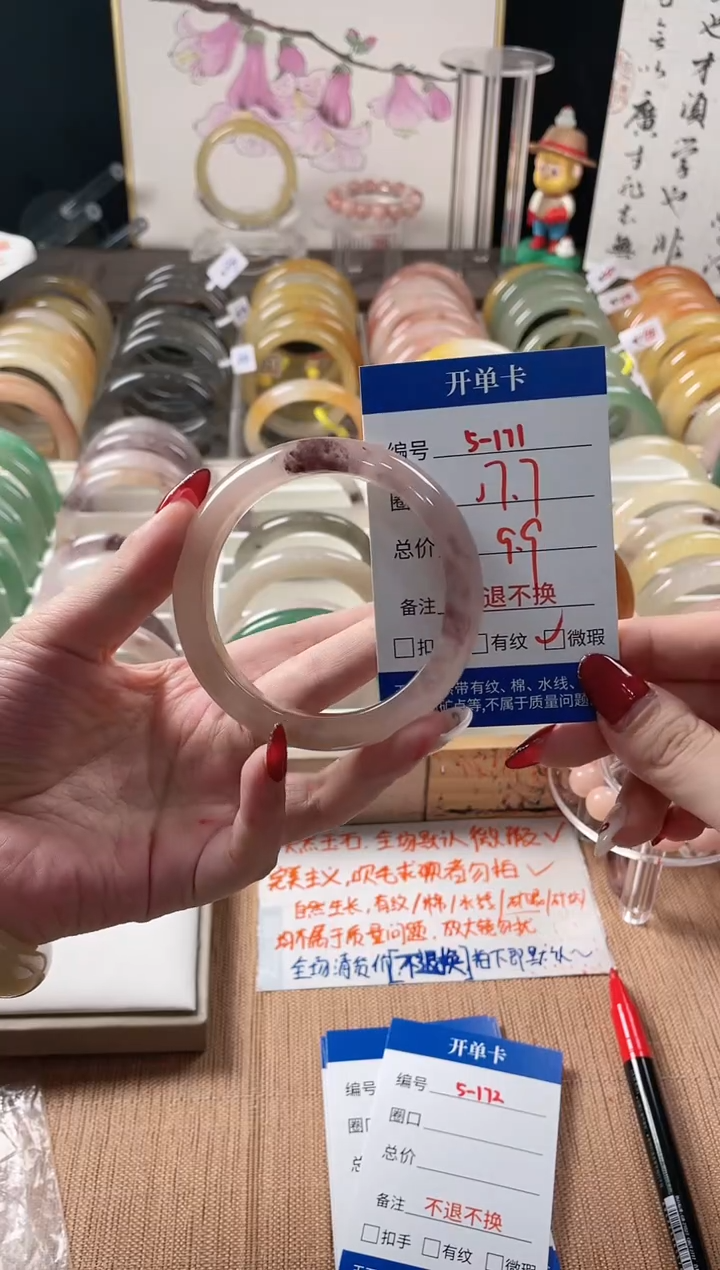 开单卡
编号 5-171
圈 17.7
总价 9.9
备注 退不换
□扣 □有纹 ☑微瑕
带有纹、棉、水线、
矿点等,不属于质量问题
然玉石.全场默认微瑕✓
完美主义,吹毛求疵者勿拍✓
自然生长,有纹/棉/水线/
均不属于质量问题.放大镜勿扰
全场清货价[不退换]拍下即默认~
开单卡
编号 5-172
圈口
总价
备注 不退不换
□扣手 □有纹 □微瑕
编号